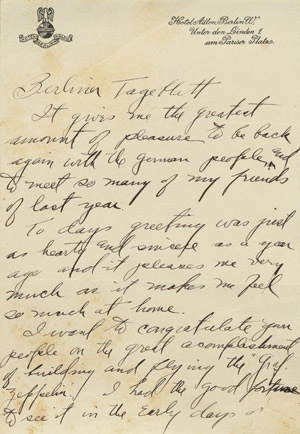 Hotel Adlon, Berlin W.
Unter den Linden 1
am Pariser Platz.
Berliner Tageblatt
It gives me the greatest
amount of pleasure to be back
again with the german people and
to meet so many of my friends
of last year.
To days greeting was just
as hearty and sincere as a year
ago and it pleases me very
much as it makes me feel
so much at home.
I want to congratulate your
people on the great acomplishment
of building and flying the "Graf
Zeppelin". I had the good fortune
to see it in the early days